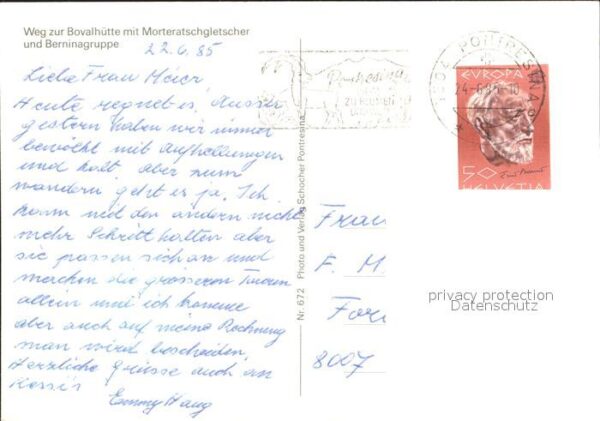 Weg zur Bovalhütte mit Morteratschgletscher
und Berninagruppe
22.6.85
Liebe Frau Meier,
Heute regnet es. Ausser
gestern haben wir immer
bewölkt mit Aufhellungen
und kalt. Aber zum
wandern geht es ja. Ich
kann mit den andern nicht
mehr Schritt halten aber
sie passen sich an und
machen die grösseren Touren
allein und ich komme
aber auch auf meine Rechnung
man wird bescheiden.
Herzliche Grüsse auch an
Emmy Haug
Nr. 672 Photo und Verlag Schocher Pontresina
Pontresina
PONTRESINA
24-6.85-10
EUROPA
50
HELVETIA
Frau
F. M
For
8007
privacy protection
Datenschutz